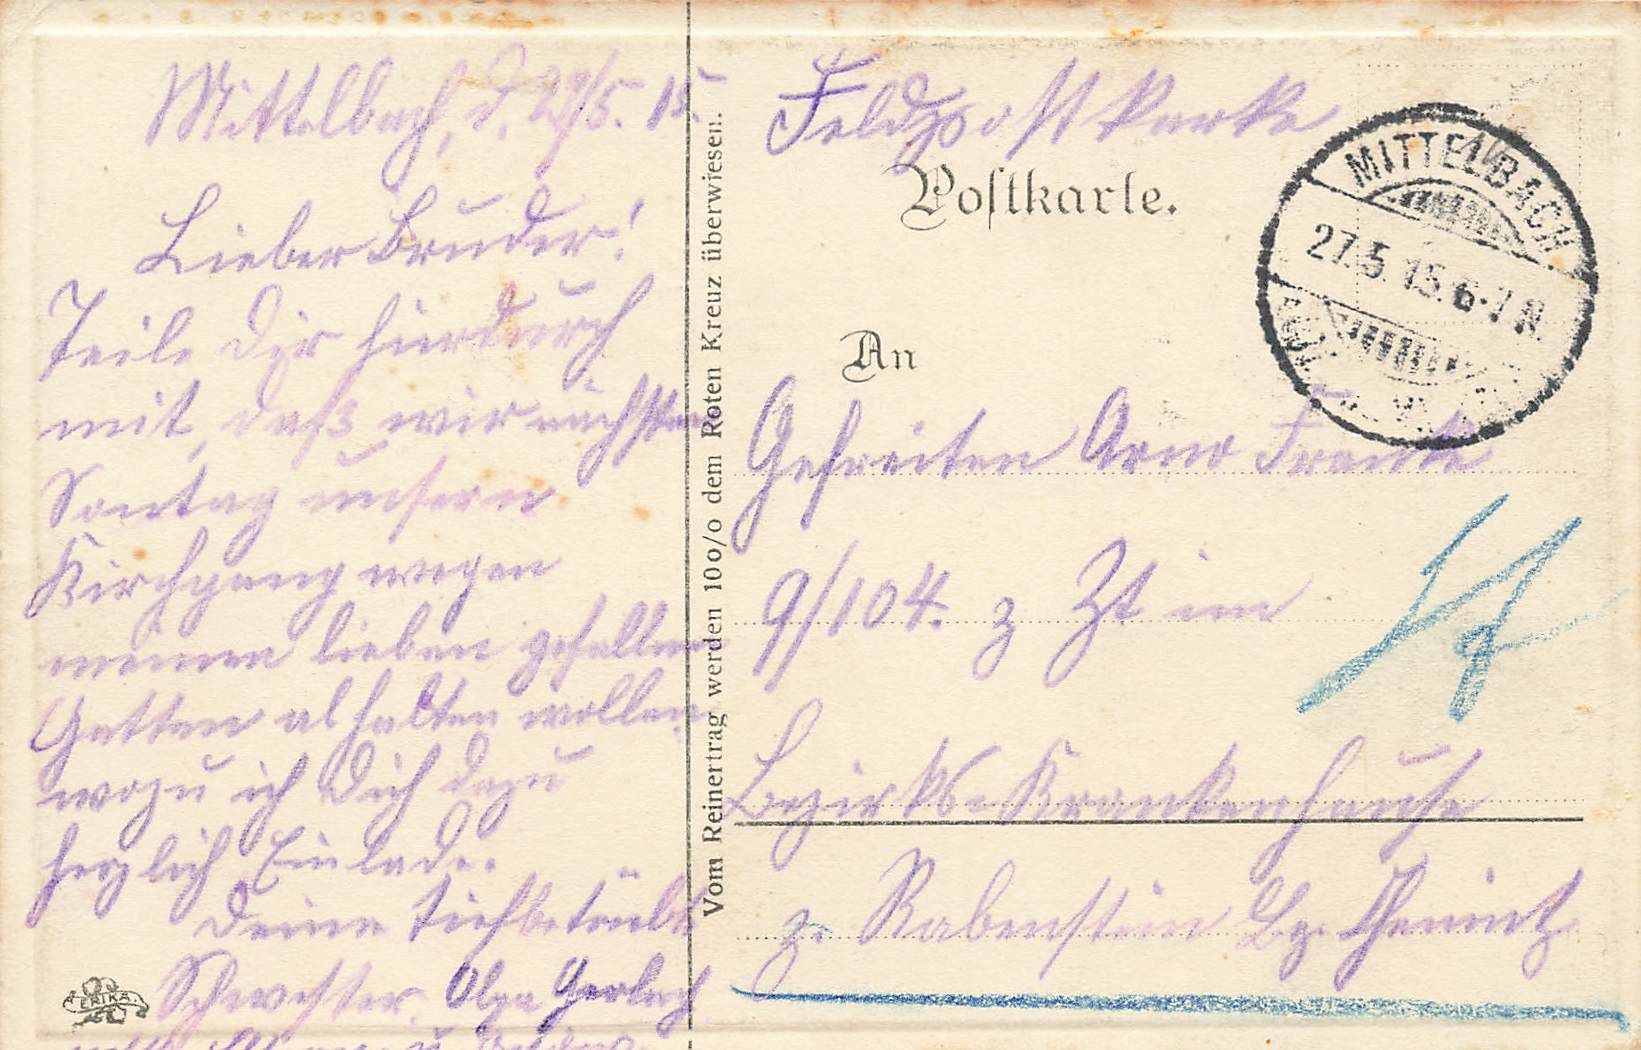 Mittelbach, d. 27/5. 15.
Lieber Bruder!
Teile Dir hierdurch
mit, daß wir nächsten
Sontag unsern
Kirchgang wegen
meinen lieben gefallenen
Gatten abhalten wollen,
wozu ich Dich dazu
herzlich Einlade.
Deine tiefbetrübte
Schwester. Olga Gerlach
ERIKA
Vom Reinertrag werden 10 o/o dem Roten Kreuz überwiesen.
Feldpostkarte
Postkarte.
MITTELBACH
27.5.15.6-7N
An
Gefreiten Arno Franke
9/104. z Zt im
Bezirks-Krankenhause
z. Rabenstein Bz. Chemnitz